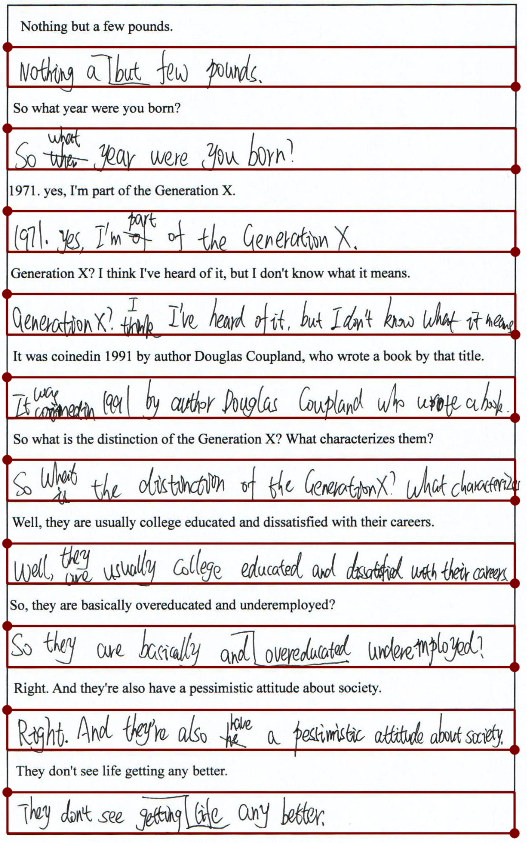 Nothing but a few pounds.
Nothing a but few pounds.
So what year were you born?
So what year were you born?
1971. yes, I'm part of the Generation X.
1971. yes, I'm part of the Generation X.
Generation X? I think I've heard of it, but I don't know what it means.
Generation X? I think I've heard of it, but I don't know what it means
It was coinedin 1991 by author Douglas Coupland, who wrote a book by that title.
It was 1991 by author Douglas Coupland who wrote a book.
So what is the distinction of the Generation X? What characterizes them?
So What is the distinction of the Generation X? What characterizes
Well, they are usually college educated and dissatisfied with their careers.
Well, they are usually College educated and dissatisfied with their careers
So, they are basically overeducated and underemployed?
So they are basically and overeducated underemployed?
Right. And they're also have a pessimistic attitude about society.
Right. And they're also have a pessimistic attitude about society.
They don't see life getting any better.
They don't see getting life any better.